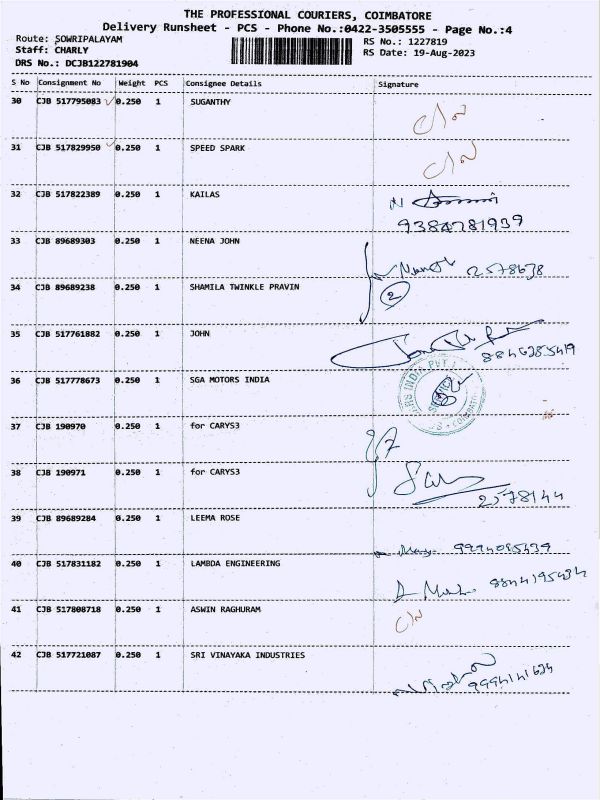 THE PROFESSIONAL COURIERS, COIMBATORE
Delivery Runsheet - PCS - Phone No.:0422-3505555 - Page No.:4
Route: SOWRIPALAYAM RS No.: 1227819
Staff: CHARLY RS Date: 19-Aug-2023
DRS No.: DCJB122781904
S No Consignment No Weight PCS Consignee Details Signature
30 CJB 517795083 0.250 1 SUGANTHY
31 CJB 517829950 0.250 1 SPEED SPARK
32 CJB 517822389 0.250 1 KAILAS
9384781939
33 CJB 89689303 0.250 1 NEENA JOHN
2578638
34 CJB 89689238 0.250 1 SHAMILA TWINKLE PRAVIN
2
35 CJB 517761882 0.250 1 JOHN
36 CJB 517778673 0.250 1 SGA MOTORS INDIA
37 CJB 190970 0.250 1 for CARYS3
38 CJB 190971 0.250 1 for CARYS3
2578144
39 CJB 89689284 0.250 1 LEEMA ROSE
40 CJB 517831182 0.250 1 LAMBDA ENGINEERING
41 CJB 517808718 0.250 1 ASWIN RAGHURAM
42 CJB 517721087 0.250 1 SRI VINAYAKA INDUSTRIES